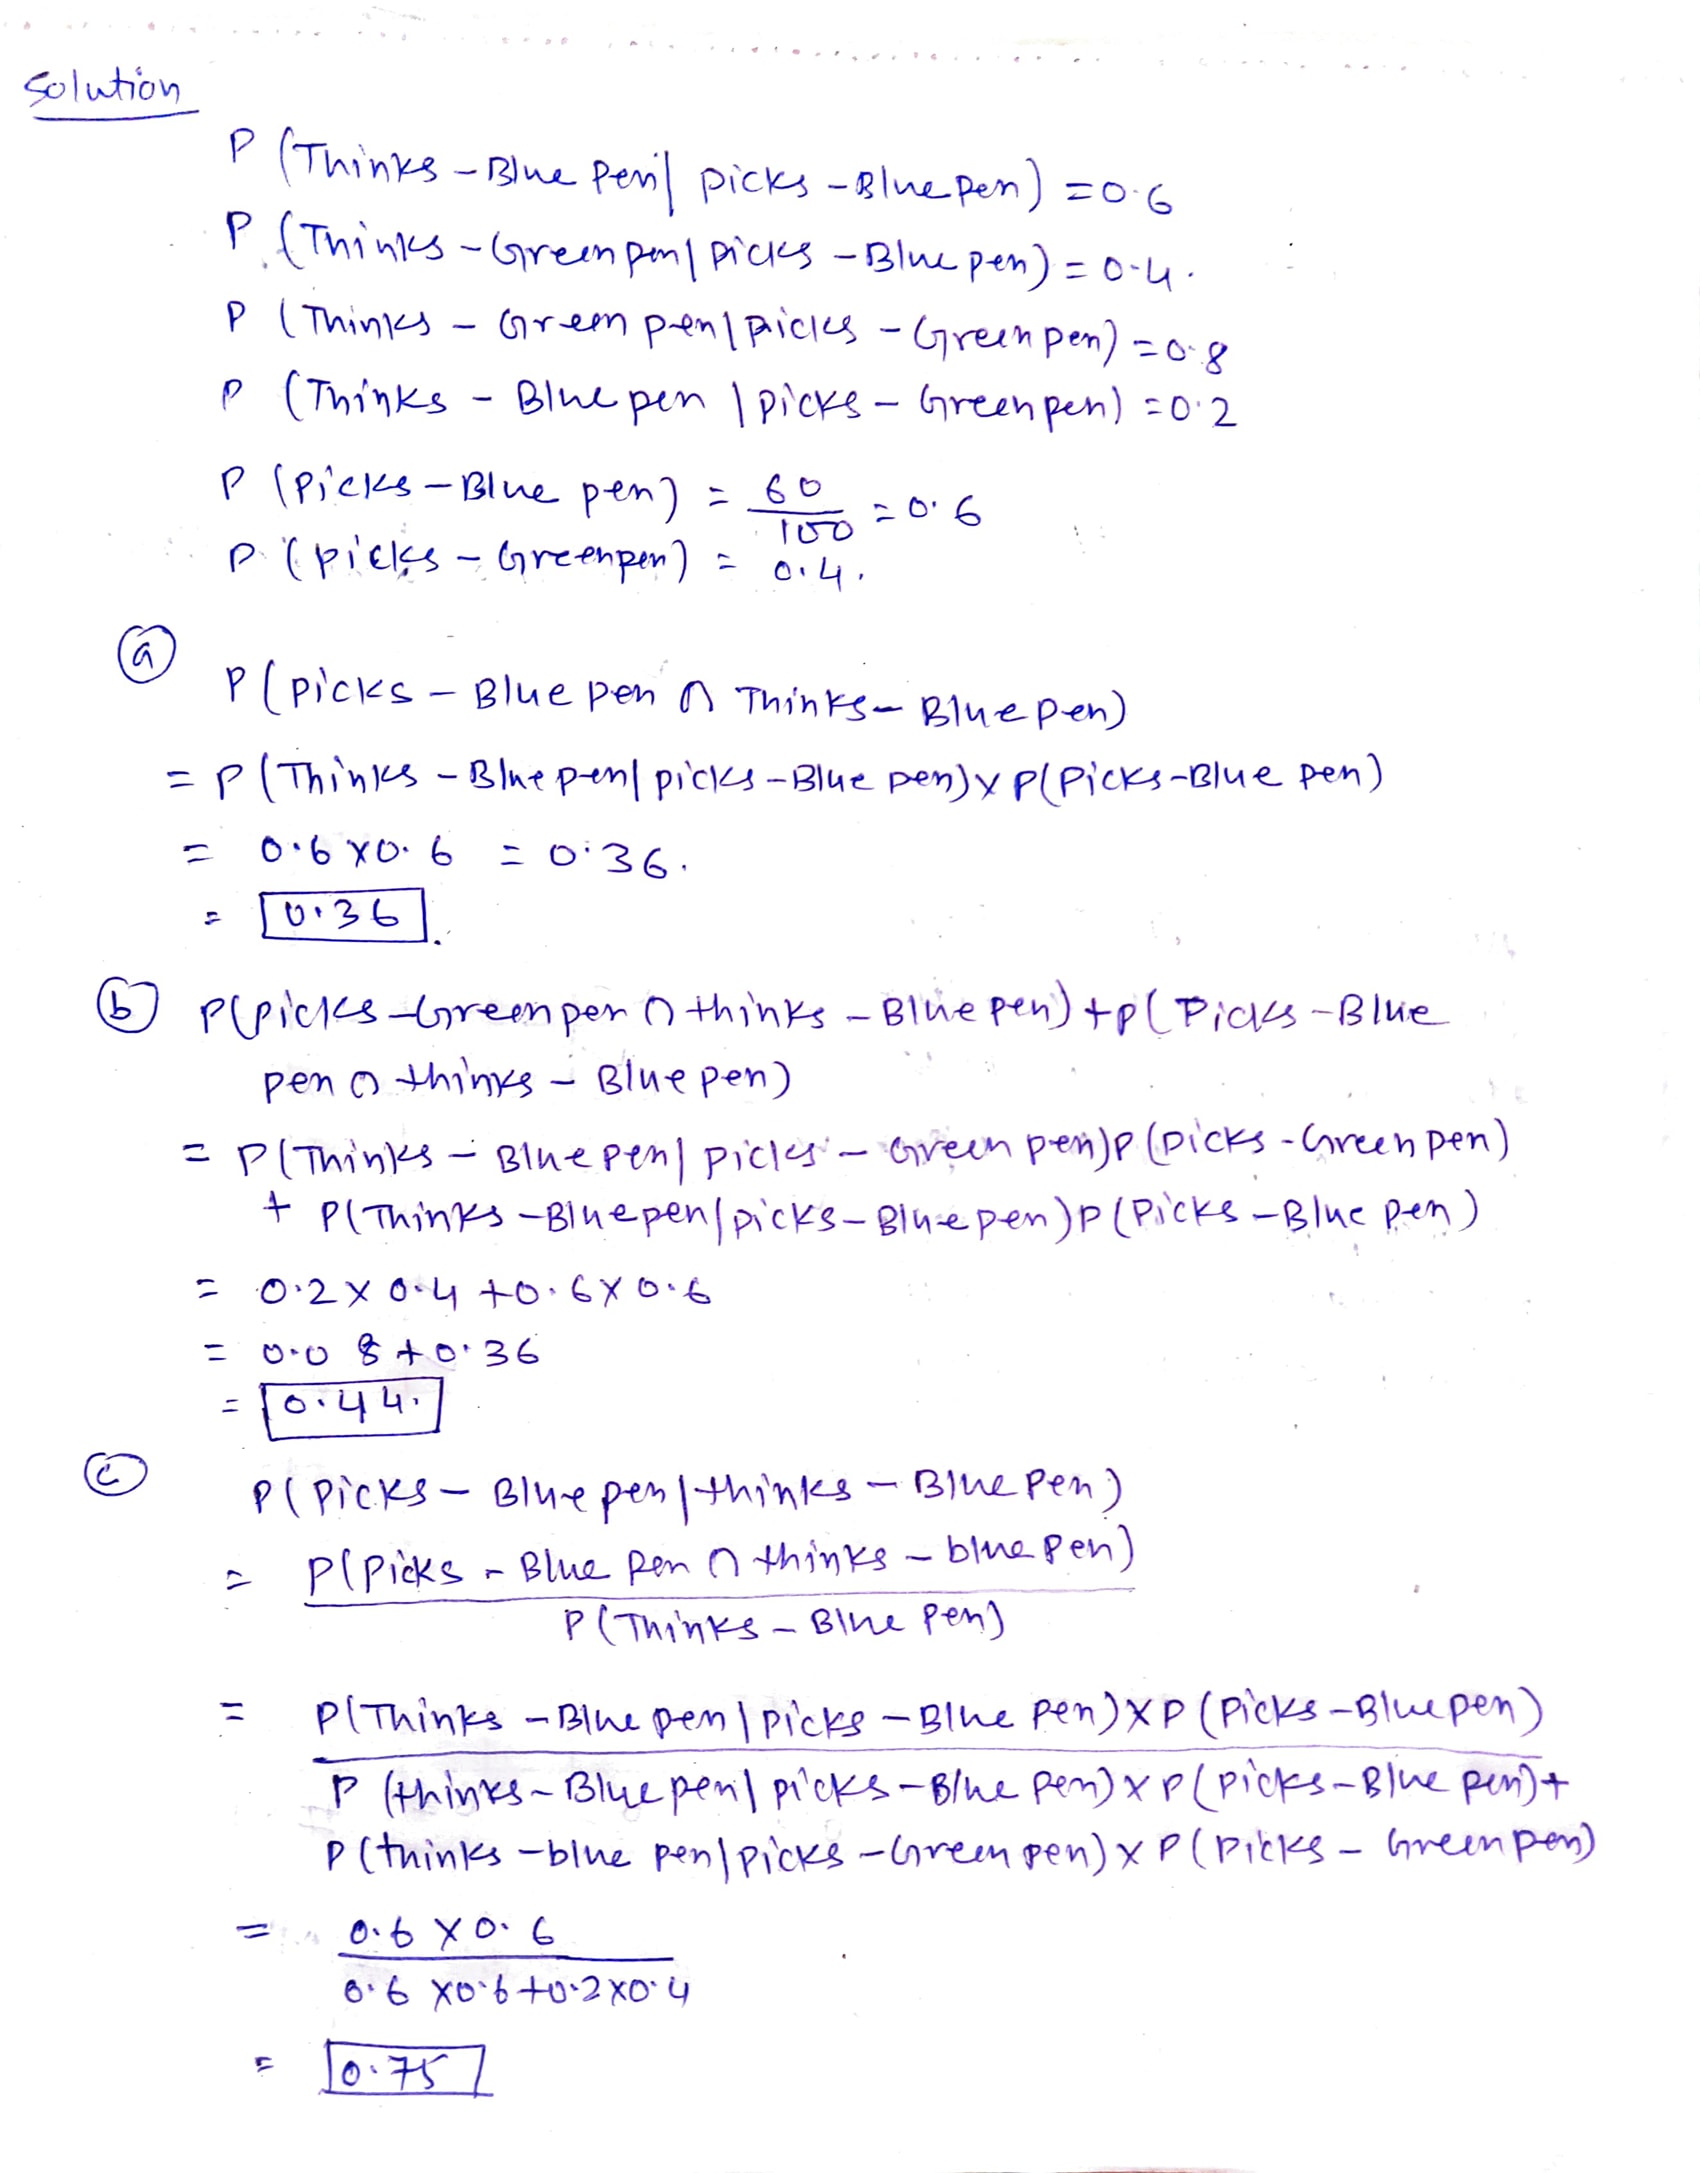 Solution
P (Thinks - Blue Pen | picks - Blue pen) = 0.6
P (Thinks - Green pen | picks - Blue pen) = 0.4.
P (Thinks - Green pen | picks - Green pen) = 0.8
P (Thinks - Blue pen | picks - Green pen) = 0.2
P (Picks - Blue pen) = 60/100 = 0.6
P (picks - Green pen) = 0.4.
(a)
P (picks - Blue pen ∩ Thinks - Blue pen)
= P (Thinks - Blue pen | picks - Blue pen) x P(Picks - Blue pen)
= 0.6 x 0.6 = 0.36.
= 0.36.
(b) P(picks - Green pen ∩ thinks - Blue pen) + P( Picks - Blue
pen ∩ thinks - Blue pen)
= P(Thinks - Blue pen | picks - Green pen) P (picks - Green pen)
+ P(Thinks - Blue pen | picks - Blue pen) P (Picks - Blue pen)
= 0.2 x 0.4 + 0.6 x 0.6
= 0.08 + 0.36
= 0.44.
(c)
P( Picks - Blue pen | thinks - Blue Pen)
= P(Picks - Blue Pen ∩ thinks - blue pen)
P (Thinks - Blue Pen)
= P(Thinks - Blue pen | picks - Blue pen) x P (Picks - Blue pen)
P (thinks - Blue pen | picks - Blue pen) x P (picks - Blue pen) +
P (thinks - blue pen | picks - Green pen) x P ( picks - Green pen)
= 0.6 x 0.6
0.6 x 0.6 + 0.2 x 0.4
= 0.75